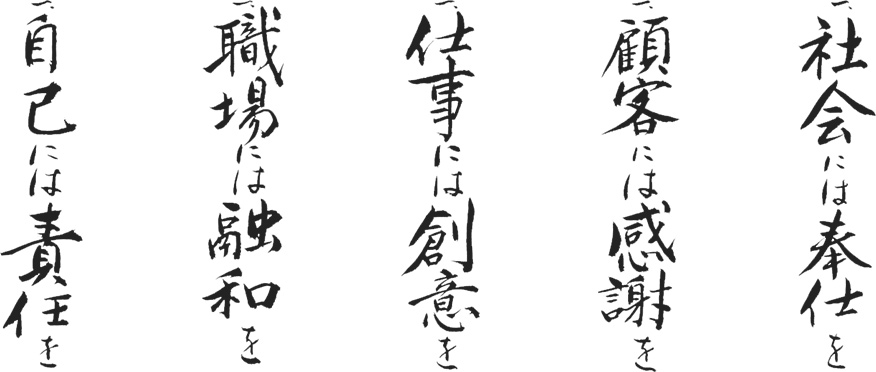 一、社会には奉仕を
一、顧客には感謝を
一、仕事には創意を
一、職場には融和を
一、自己には責任を